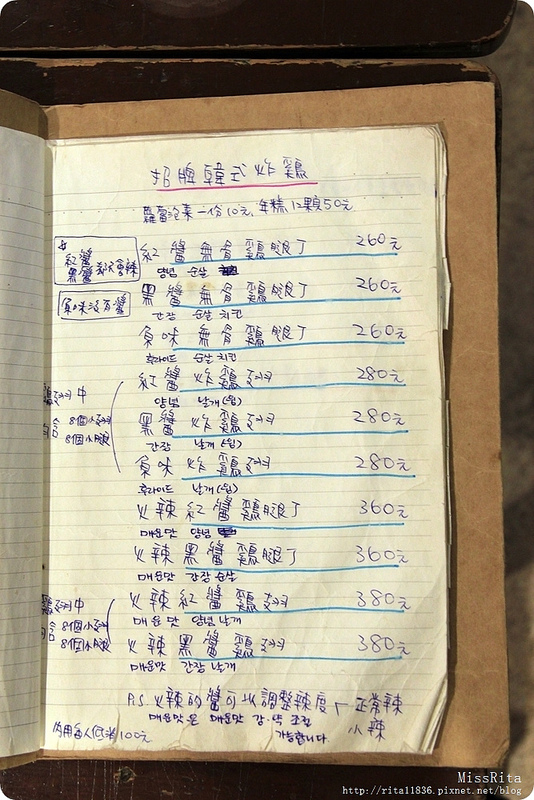 招牌韓式炸鷄
蘿蔔泡菜一份10元, 年糕12顆50元
紅醬
黑醬 都不會辣
原味沒有醬
紅醬無骨鷄腿丁 260元
양념 순살
黑醬無骨鷄腿丁 260元
간장 순살 치킨
原味無骨鷄腿丁 260元
후라이드 순살 치킨
紅醬炸鷄翅 280元
양념 날개(윙)
黑醬炸鷄翅 280元
간장 날개(윙)
原味炸鷄翅 280元
후라이드 날개(윙)
鷄翅中
含 8個小翅
8個小腿
火辣紅醬鷄腿丁 360元
매운맛 양념
火辣黑醬鷄腿丁 360元
매운맛 간장 순살
火辣紅醬鷄翅 380元
매운맛 양념 날개
火辣黑醬鷄翅 380元
매운맛 간장 날개
鷄翅中
含 8個小翅
8個小腿
P.S. 火辣的醬可以調整辣度 正常辣
小辣
매운맛은 매운맛 강·약 조절
가능합니다
內用每人低消100元
MissRita
http://rita11836.pixnet.net/blog